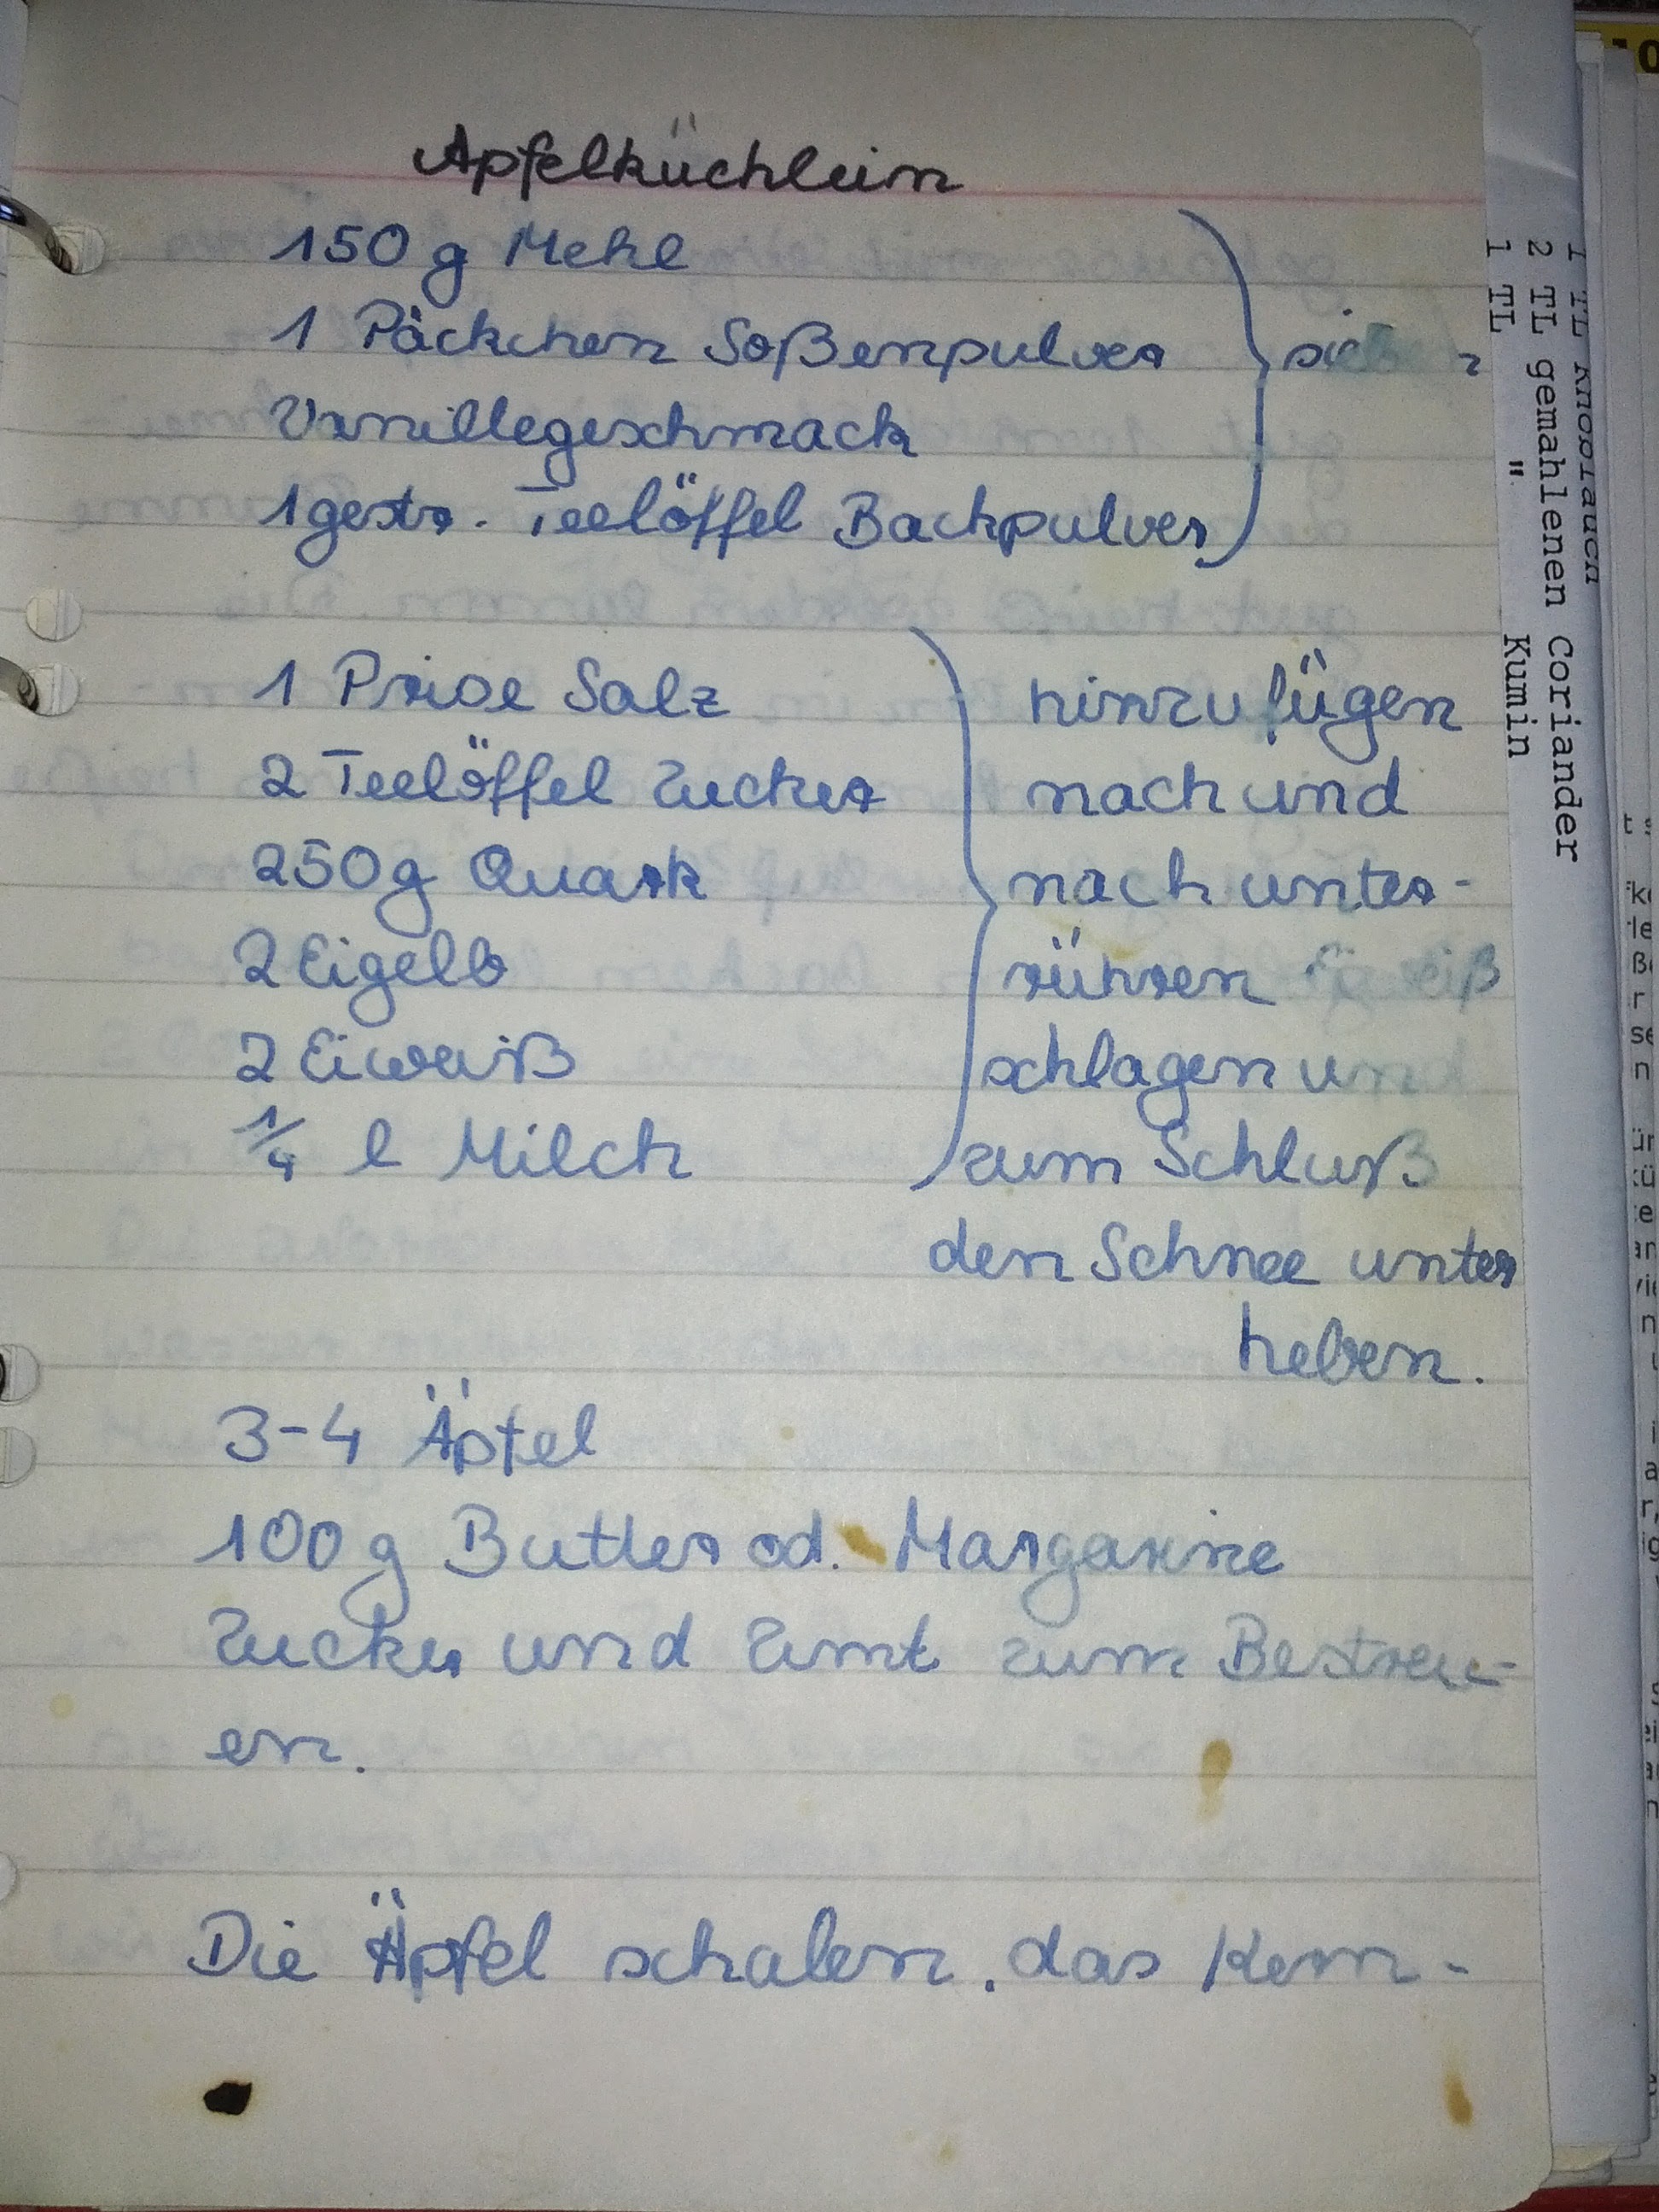 Apfelküchlein
150 g Mehl
1 Päckchen Soßenpulver
sieben
Vanillegeschmack
1 gestr. Teelöffel Backpulver
1 Prise Salz
2 Teelöffel Zucker
250 g Quark
2 Eigelb
2 Eiweiß
1/4 l Milch
hinzufügen
nach und
nach unter-
rühren Eiweiß
schlagen und
zum Schluß
den Schnee unter
heben.
3-4 Äpfel
100 g Butter od. Margarine
Zucker und Zimt zum Bestreu-
en.
Die Äpfel schalen. das Kern-
1 TL Knoblauch
2 TL gemahlenen Coriander
1 TL " Kumin
10